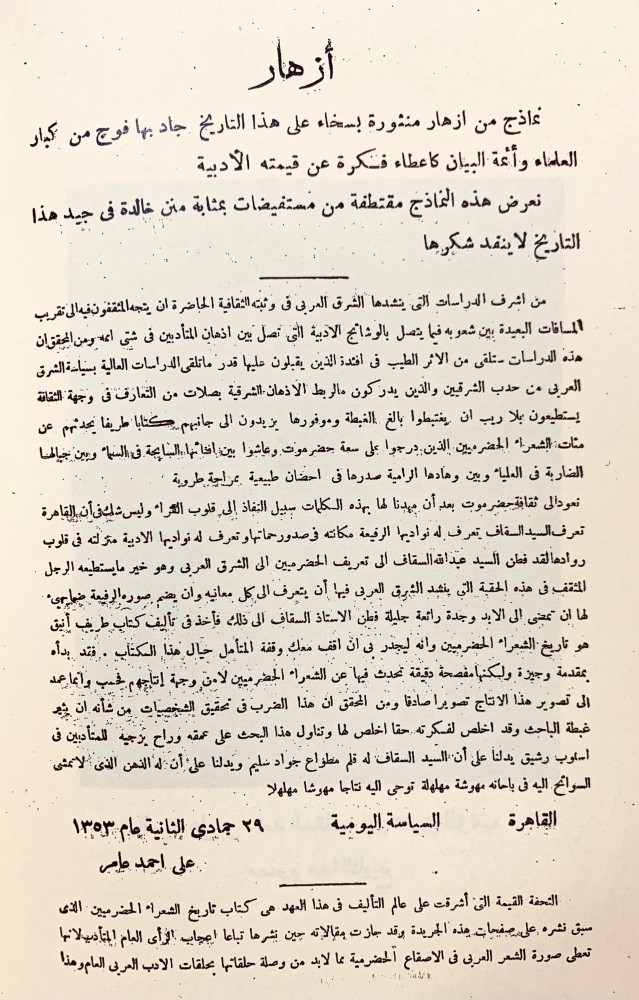 أزهار
نماذج من ازهار منثورة بسخاء على هذا التاريخ جاد بها فوج من كبار
العلماء وأئمة البيان كاعطاء فكرة عن قيمته الأدبية
نعرض هذه النماذج مقتطفة من مستفيضات بمثابة منن خالدة فى جيد هذا
التاريخ لا ينفد شكرها
من اشرف الدراسات التى ينشدها الشرق العربى فى وثبته الثقافية الحاضرة ان يتجه المثقفون فيه الى تقريب
المسافات البعيدة بين شعوبه فيما يتصل بالوشائج الادبية التى تصل بين اذهان المتأدبين فى شتى اممه ومن المحقق ان
هذه الدراسات ستلقى من الاثر الطيب فى افئدة الذين يقبلون عليها قدر ما تلقى الدراسات العالية بسياسة الشرق
العربى من حدب الشرقيين والذين يدركون ما لربط الاذهان الشرقية بصلات من التعارف فى وجهة الثقافة
يستطيعون بلا ريب ان يغتبطوا بالغ الغبطة وموفورها يزيدون الى جانبهم كتابا طريفا يحدثهم عن
مئات الشعراء الحضرميين الذين درجوا على سعة حضرموت وعاشوا بين افنائها السابحة فى السماء وبين جبالها
الضاربة فى العلياء وبين وهادها الرامية صدرها فى احضان طبيعية بمراحة طروبة
نعود الى ثقافة حضرموت بعد أن مهدنا لها بهذه الكلمات سبيل النفاذ إلى قلوب القراء وليس شك فى أن القاهرة
تعرف السيد السقاف تعرف له نواديها الرفيعة مكانته فى صدور رحماتها وتعرف له نواديها الادبية منزلته فى قلوب
روادها لقد فطن السيد عبد الله السقاف الى تعريف الحضرميين الى الشرق العربى وهو خير ما يستطيعه الرجل
المثقف فى هذه الحقبة التى ينشد الشرق العربى فيها أن يتعرف الى كل معانيه وان يضم صوره الرفيعة ضما يهيء
لها ان تمضى الى الابد وحدة رائعة جليلة فطن الاستاذ السقاف الى ذلك فأخذ فى تأليف كتاب طريف أنيق
هو تاريخ الشعراء الحضرميين وانه ليجدر بى ان اقف معك وقفة المتأمل حيال هذا الكتاب . فقد بدأه
بمقدمة وجيزة ولكنها مفصحة دقيقة تحدث فيها عن الشعراء الحضرميين لا من وجهة إنتاجهم فحسب وانما عمد
الى تصوير هذا الانتاج تصويرا صادقا ومن المحقق ان هذا الضرب فى تحقيق الشخصيات من شأنه ان يثير
غبطة الباحث وقد اخلص لفكرته حقا اخلص لها وتناول هذا البحث على عمقه وراح يزجيه للمتأدبين فى
اسلوب رشيق يدلنا على أن السيد السقاف له قلم مطواع جواد سليم ويدلنا على أن له الذهن الذى لا تمشى
السوائح اليه فى باحاته مهوشة مهلهلة توحى اليه نتاجا مهوشا مهلهلا
القاهرة السياسة اليومية ٢٩ جمادى الثانية عام ١٣٥٣
على احمد عامر
التحفة القيمة التى أشرقت على عالم التأليف فى هذا العهد هى كتاب تاريخ الشعراء الحضرميين الذى
سبق نشره على صفحات هذه الجريدة وقد حازت مقالاته حين نشرها تباعا اعجاب الرأى العام المتأدب لانها
تعطى صورة الشعر العربى فى الاصقاع الحضرمية مما لابد من وصلة حلقاتها بحلقات الادب العربى العام وهذا